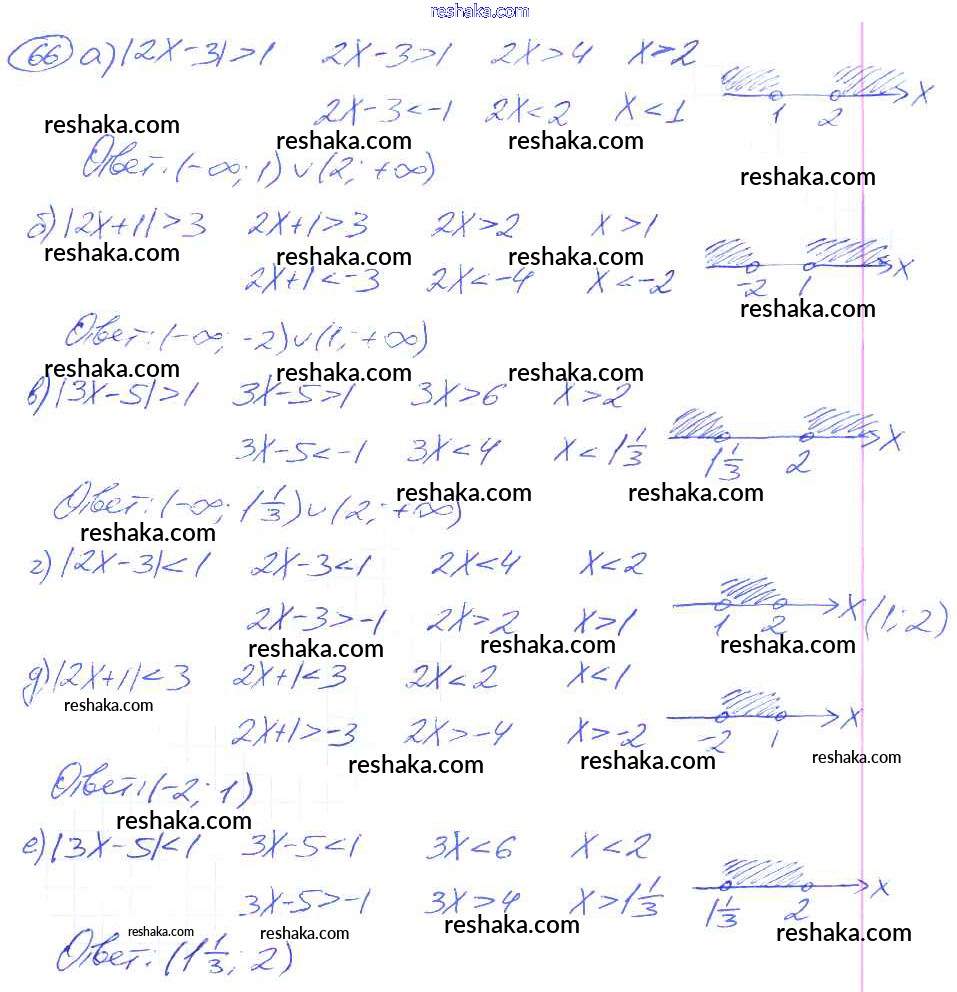 reshaka.com
66 а) |2x-3|>1 2x-3>1 2x>4 x>2
2x-3<-1 2x<2 x<1 1 2 x
reshaka.com reshaka.com reshaka.com
Ответ: (-∞; 1) ∪ (2; +∞)
reshaka.com
б) |2x+1|>3 2x+1>3 2x>2 x>1
reshaka.com reshaka.com reshaka.com
2x+1<-3 2x<-4 x<-2 -2 1 x
reshaka.com
Ответ: (-∞; -2) ∪ (1; +∞)
reshaka.com reshaka.com reshaka.com
в) |3x-5|>1 3x-5>1 3x>6 x>2
3x-5<-1 3x<4 x<1 1/3 1 1/3 2 x
reshaka.com reshaka.com
Ответ: (-∞; 1 1/3) ∪ (2; +∞)
reshaka.com
г) |2x-3|<1 2x-3<1 2x<4 x<2
2x-3>-1 2x>2 x>1 1 2 x (1; 2)
reshaka.com reshaka.com reshaka.com
д) |2x+1|<3 2x+1<3 2x<2 x<1
reshaka.com
2x+1>-3 2x>-4 x>-2 -2 1 x
reshaka.com reshaka.com reshaka.com
Ответ: (-2; 1)
reshaka.com
е) |3x-5|<1 3x-5<1 3x<6 x<2
3x-5>-1 3x>4 x>1 1/3 1 1/3 2 x
reshaka.com reshaka.com reshaka.com reshaka.com
Ответ: (1 1/3; 2)